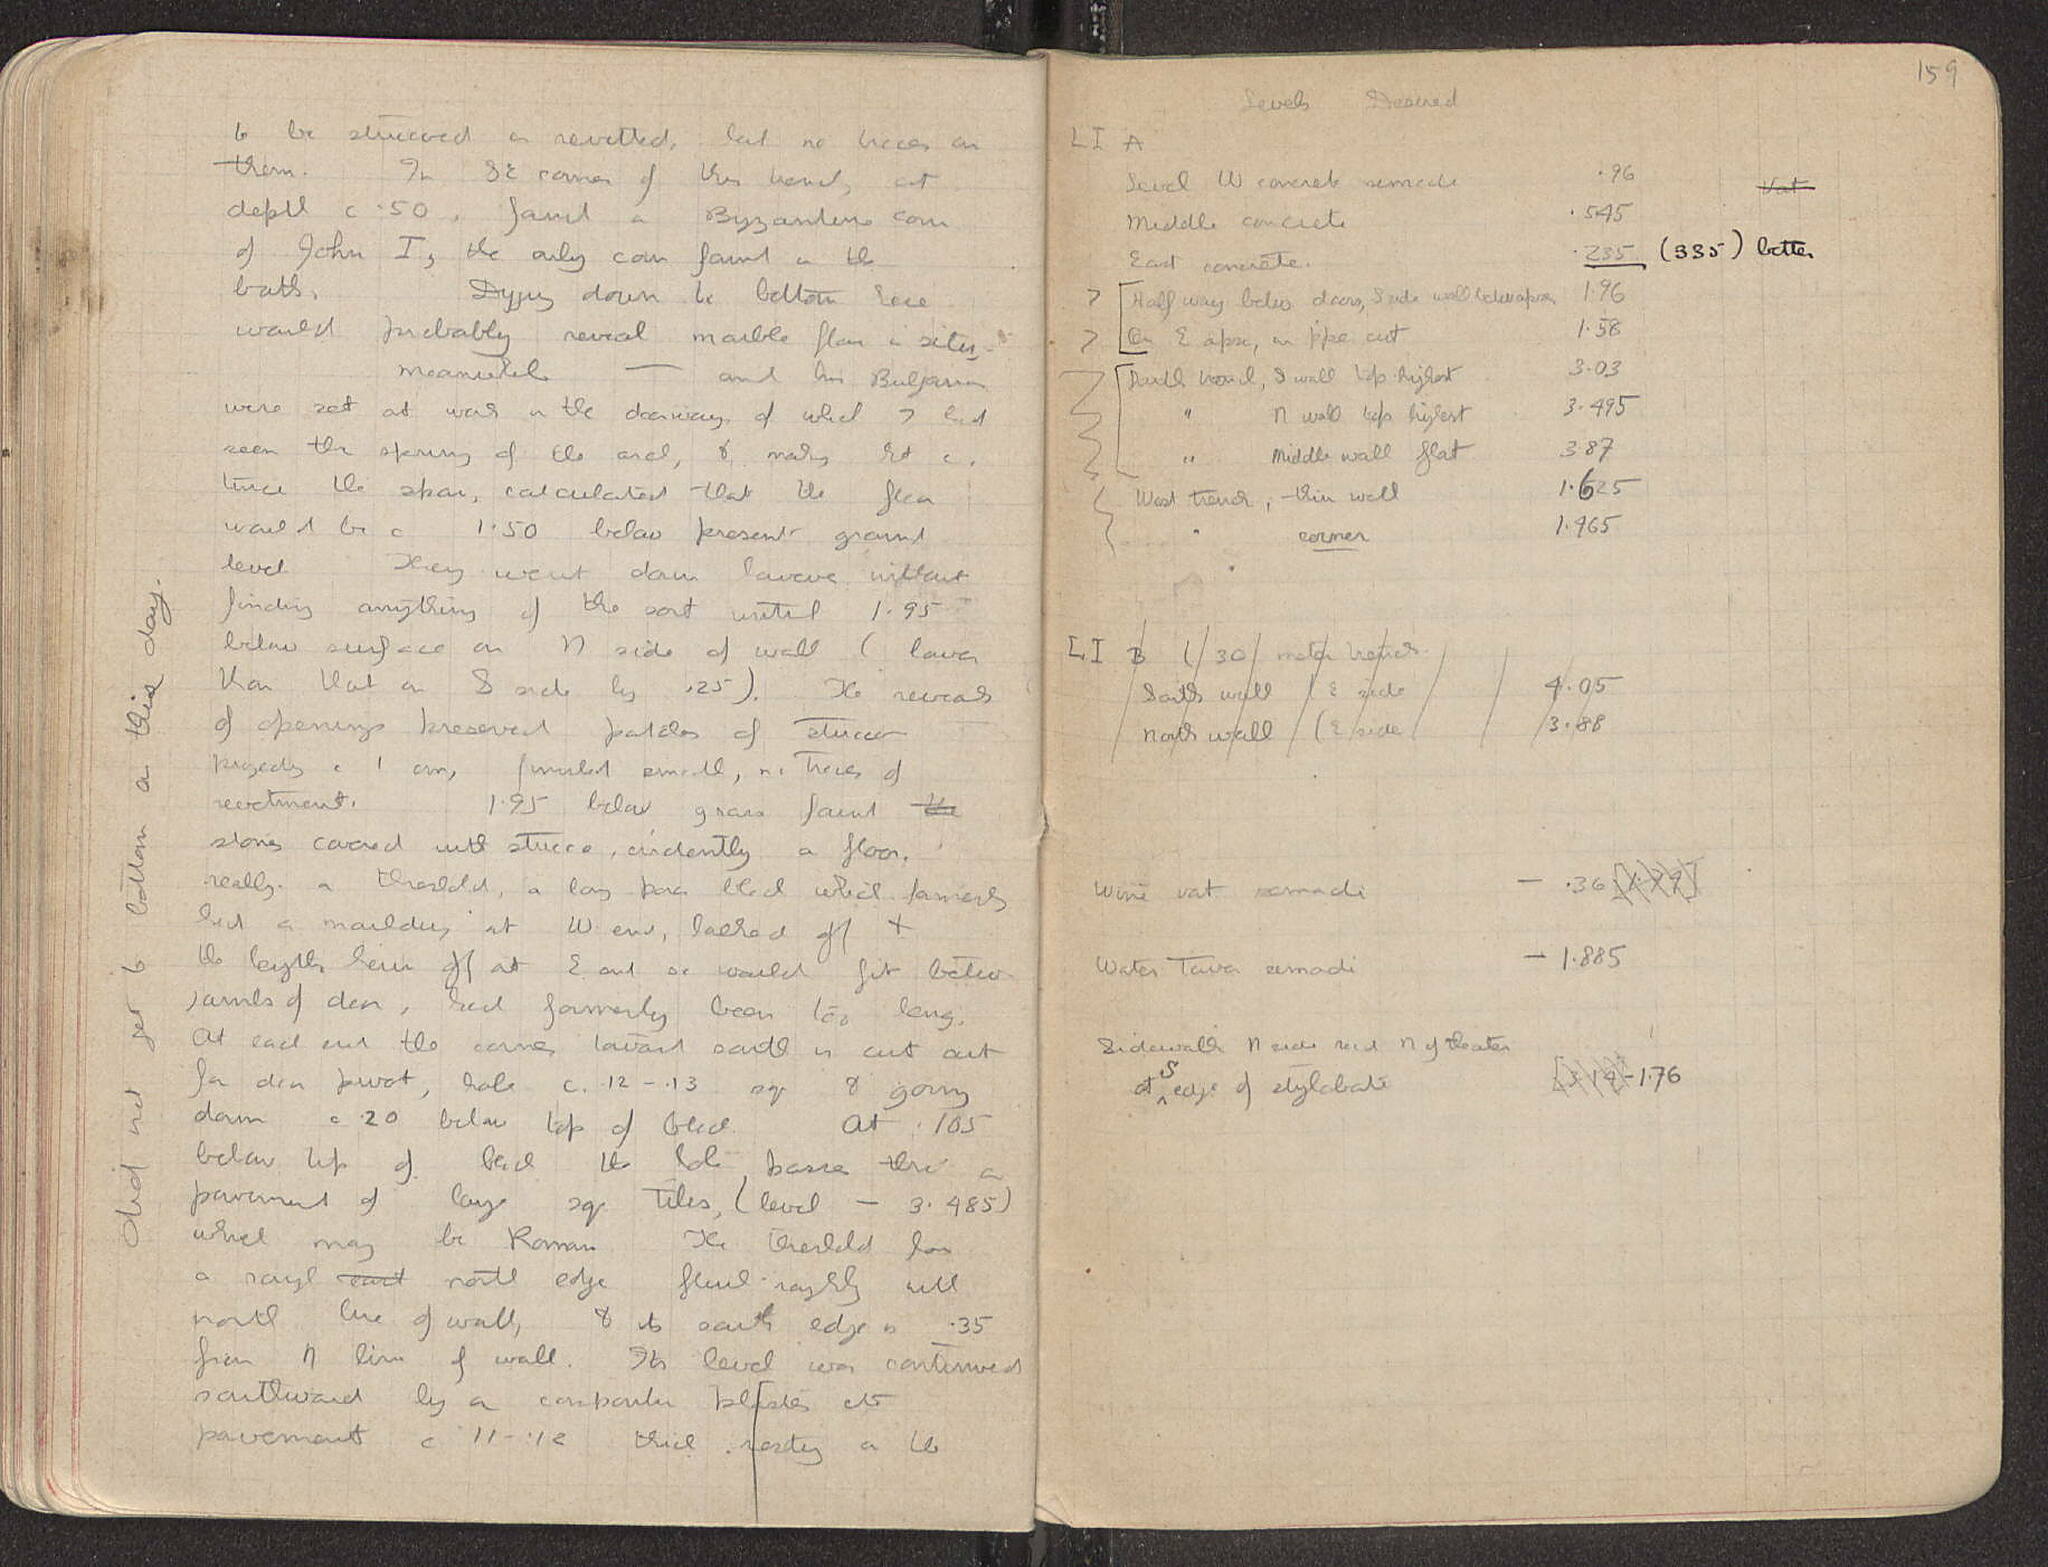 to be stuccoed or revetted, but no traces on
them. In SE corner of this trench, at
depth c .50, found a Byzantine coin
of John I, the only coin found in the
bath. Digging down to bottom here
would probably reveal marble floor in situ.
Meanwhile — and his Bulgarian
were set at work in the doorway of which I had
seen the spring of the arch, &
twice the span, calculated that the floor
would be c 1.50 below present ground
level They went down however without
finding anything of the sort until 1.95
below surface on N side of wall (lower
than that on S side by .25). The reveals
of openings preserved patches of stucco
projecting c 1 cm, finished smooth, no traces of
revetment. 1.95 below grass found the
stones covered with stucco, evidently a floor.
really a threshold, a long poros block which formerly
had a moulding at W end, hacked off +
the length hewn off at E end so would fit between
jambs of door, had formerly been too long.
At each end the corner toward south is cut out
for door pivot, hole c. .12 - .13 sq & going
down c .20 below top of block. At .105
below top of block the hole passes thru a
pavement of large sq tiles, (level — 3.485)
which may be Roman The threshold has
a rough east north edge flush roughly with
north line of wall, & its south edge is .35
from N line of wall. Its level was continued
southward by a plaster etc
pavement c 11 - .12 thick resting on the
Did not get to bottom on this day.
159
Levels Desired
LI A
Level W concrete remade .96 Vat
Middle concrete .545
East concrete. .235 (335) better
> Half way betw doors, S side wall below apse 1.96
> On E apse, in pipe cut 1.58
South trench, S wall top highest 3.03
" N wall top highest 3.495
" Middle wall flat 3.87
West trench, thin wall 1.625
" corner 1.965
LI B (30 meter trench.
South wall (E side 4.05
North wall (E side 3.88
Wine vat remade — .36
Water Tower remade — 1.885
Sidewalk N side road N of theater
at S edge of stylobate -1.76